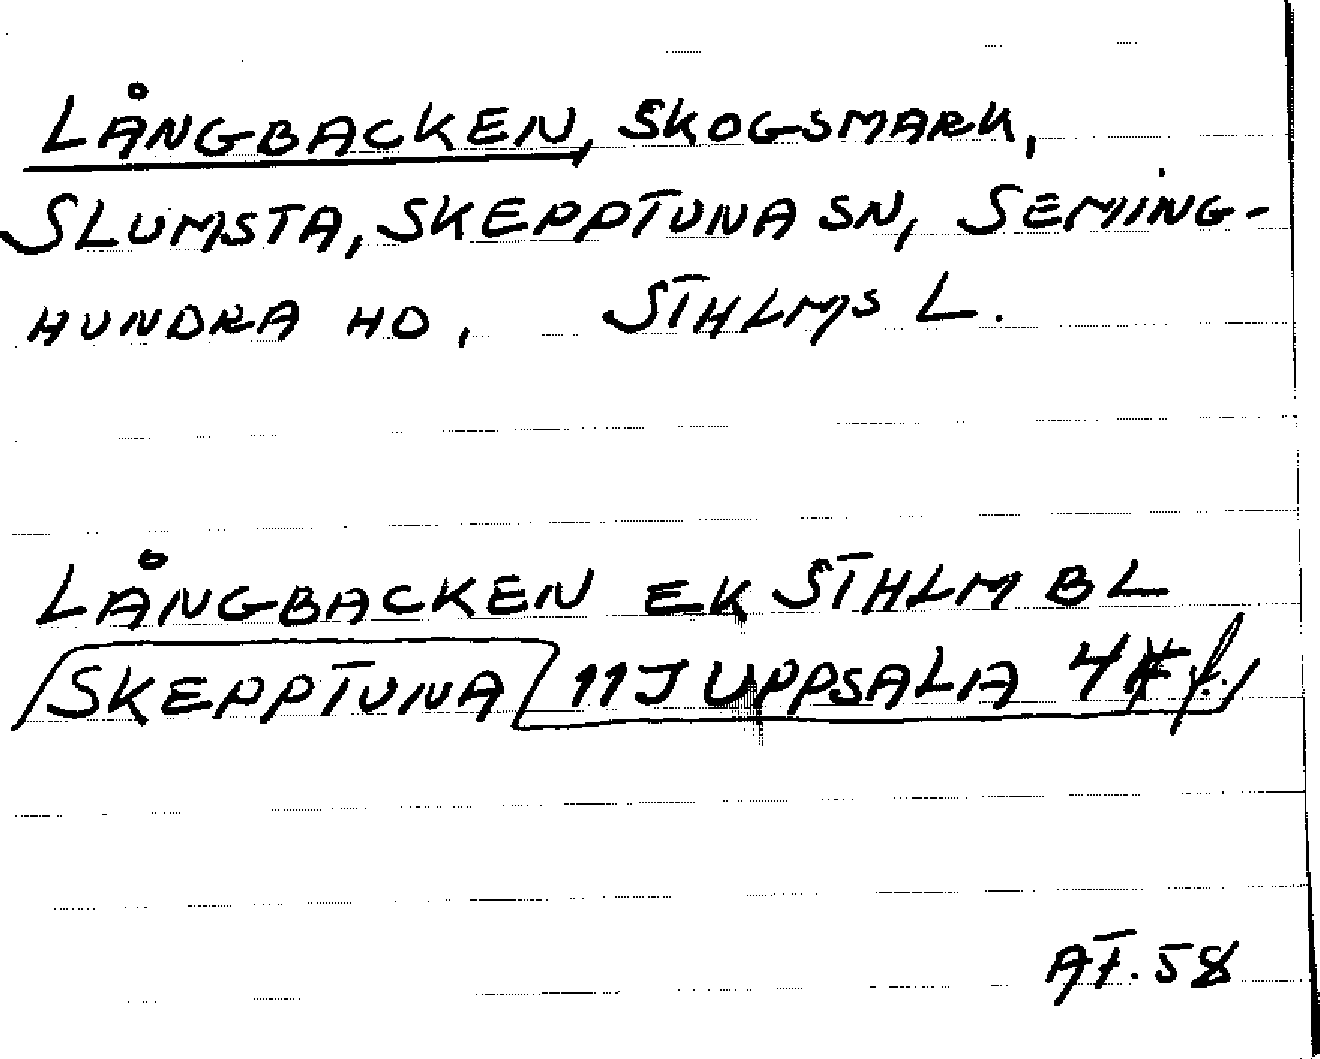 LÅNGBACKEN, SKOGSMARK,
SLUMSTA, SKEPPTUNA SN, SEMING-
HUNDRA HD, STHLMS L.
LÅNGBACKEN EK STHLM BL
SKEPPTUNA 11J UPPSALA 4
AT. 58